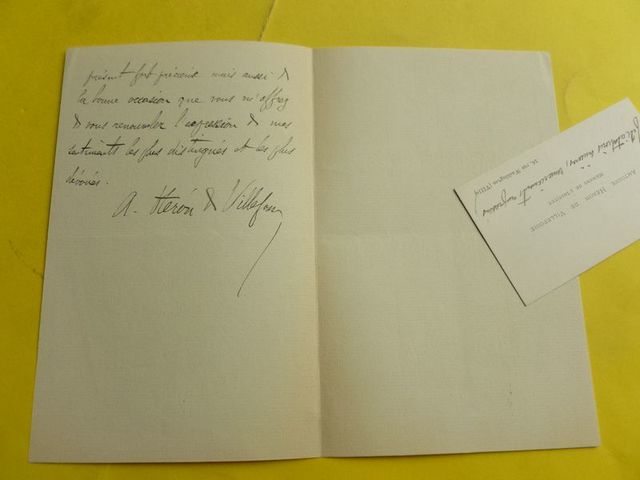 présent fort précieux mais aussi de
la bonne occasion que vous m'offrez
de vous renouveler l'expression de mes
sentiments les plus distingués et les plus
dévoués.
A. Héron de Villefosse
Antoine Héron de Villefosse
Membre de l'Institut
16, rue Washington (VIIIe)